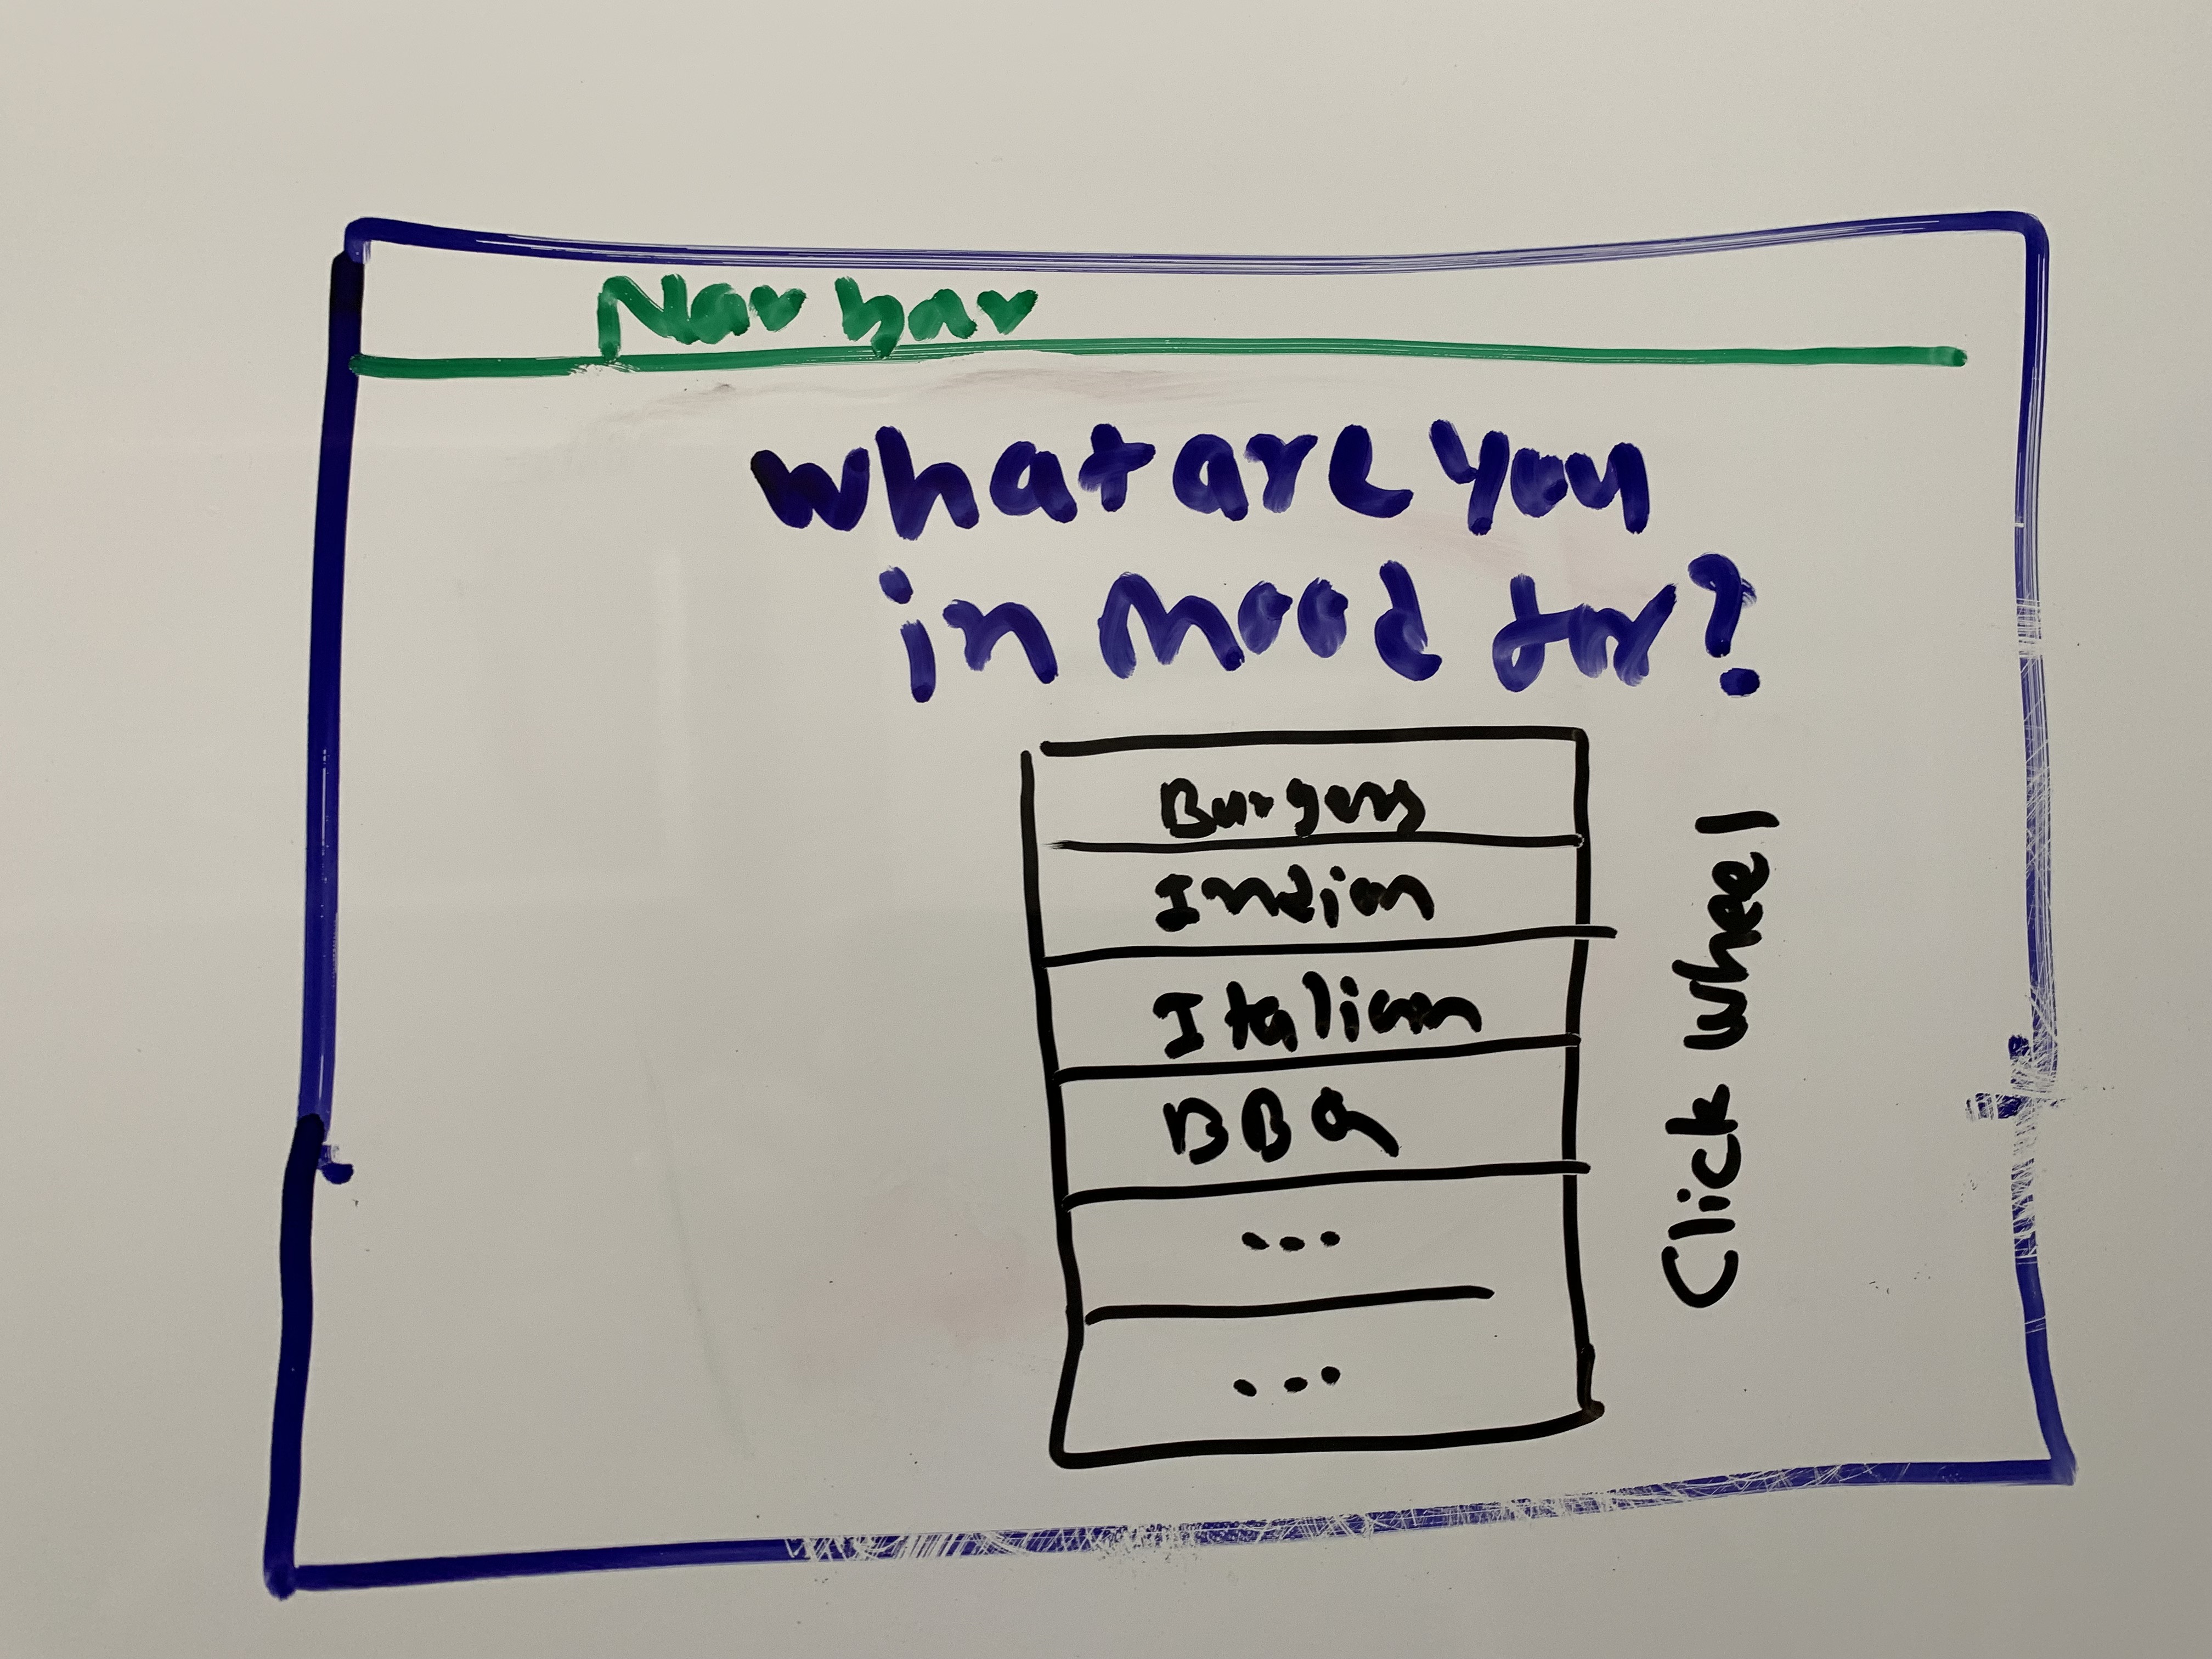 Nav bar
What are you
in mood for?
Burgers
Indian
Italian
BBQ
...
...
Click wheel